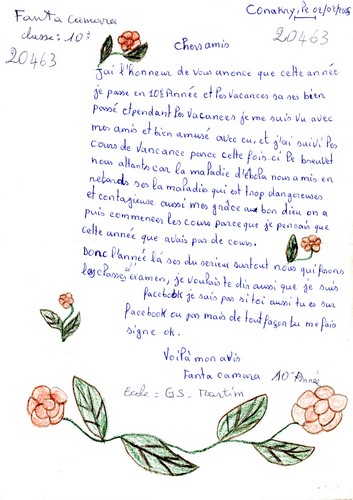 Fanta camara
classe: 10e
20463
Conakry, le 02/02/2015
20463
Chers amis
J'ai l'honneur de vous anonce que cette année
je passe en 10e Année et les vacances sa ses bien
passé ctpendant les vacances je me suis vu avec
mes amis et bien amusé avec eu, et j'ai suivi les
cours de vancance parce cette fois-ci le brevet
nous attants car la maladie d'Ebola nous a mis en
retards ses la maladie qui est trop dangereuses
et contagieuse aussi mes grâce au bon dieu on a
puis commencer les cours parceque je pensais que
cette année que avais pas de cours.
Donc l'année là ses du serieu surtout nous qui faisons
les classes d'examen, je voulais te dis aussi que je suis
facebook je sais pas si toi aussi tu es sur
Facebook ou pas mais de tout façon tu me fais
signe ok.
Voilà mon avis
Fanta camara 10e Année
Ecole : GS. Martin